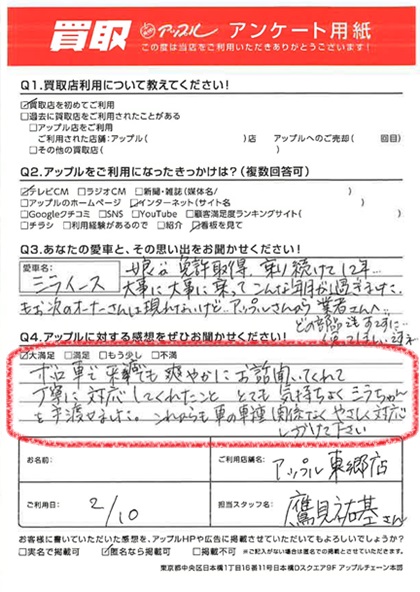 買取 アップル アンケート用紙
この度は当店をご利用いただきありがとうございます!
Q1.買取店利用について教えてください!
☑買取店を初めてご利用
□過去に買取店をご利用されたことがある
□アップル店をご利用
ご利用された店舗:アップル( )店 アップルへのご売却( 回目)
□その他の買取店( )
Q2.アップルをご利用になったきっかけは?(複数回答可)
☑テレビCM □ラジオCM □新聞・雑誌(媒体名/ )
□アップルのホームページ ☑インターネット(サイト名 )
□Googleクチコミ □SNS □YouTube □顧客満足度ランキングサイト( )
□チラシ □利用経験があるので □紹介 ☑看板を見て
Q3.あなたの愛車と、その思い出をお聞かせください!
愛車名:
ミライース
娘が免許取得、乗り続けて12年…
大事に大事に乗ってこんな年月が過ぎました。
もお次のオーナーさんは現れないけど、アップルさんから業者さんへ、
Q4.アップルに対する感想をぜひお聞かせください!
☑大満足 □満足 □もう少し □不満
ボロ車で来ても爽やかにお話聞いてくれて
丁寧に対応してくれたこと とても気持ちよくミラちゃん
を手渡せました。これからも車の車種関係なくやさしく対応
しかけて下さい
お名前:
ご利用店舗名:
アップル東郷店
ご利用日:
2/10
担当スタッフ名:
鷹見祐基さん
お書きいただいた感想を、アップルHPや広告に掲載させていただいてもよろしいでしょうか?
□実名で掲載可 ☑匿名なら掲載可 □掲載不可 ※ご記入がない場合は匿名とさせていただきます。
東京都中央区日本橋1丁目16番11号日本橋Dスクエア9F アップルチェーン本部